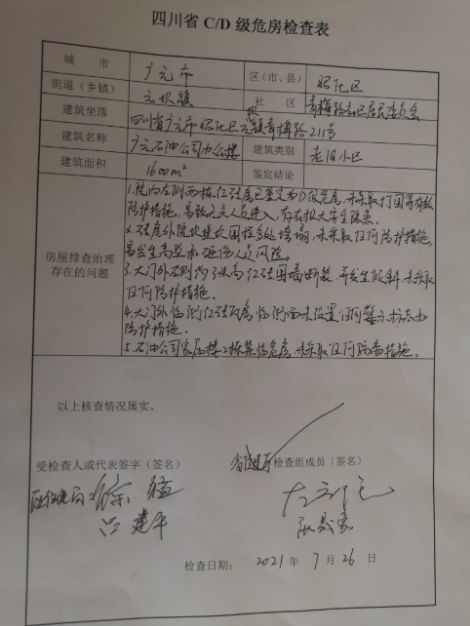 四川省 C/D 级危房检查表
城市 广元市 区(市、县) 昭化区
街道(乡镇) 元坝镇 社区 青梅路社区居民委员会
建筑坐落 四川省广元市昭化区元坝镇青梅路211号
建筑名称 广元石油公司办公楼 建筑类别 老旧小区
建筑面积 1600m² 鉴定结论
房屋排查治理
存在的问题
1.院内左侧两栋红砖房已鉴定为D级危房,未采取打围等有效
防护措施,易致无关人员进入,存在极大安全隐患。
2.砖房外院坝堡坎围栏多处垮塌,未采取任何防护措施,
易发生高坠和砸伤人员风险。
3.大门外右侧约3米高红砖围墙断裂,并发生倾斜,未采取
任何防护措施。
4.大门外临街红砖瓦房临街面未设置任何警示标志和
防护措施。
5.石油公司家属楼2栋紧临危房,未采取任何防毒措施。
以上核查情况属实。
受检查人或代表签字(签名) 检查组成员(签名)
检查日期: 2021 年 7 月 26 日